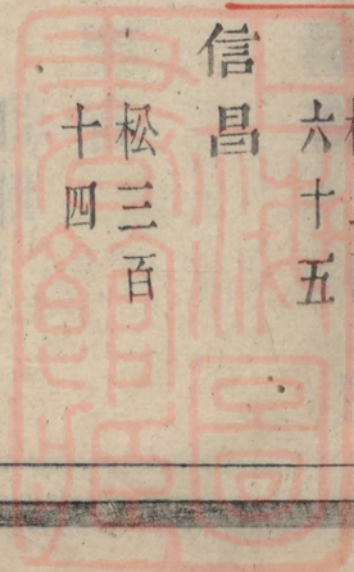 六十五
信昌
松三百
十四